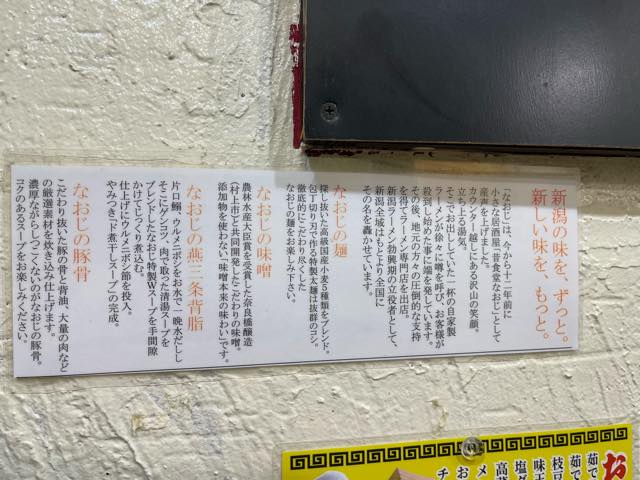 新潟の味を、ずっと。
新しい味を、もっと。
「なおじ」は、今から十二年前に
小さな居酒屋「昔食堂なおじ」として
産声を上げました。
カウンター越しにある沢山の笑顔。
立ち上る湯気。
そこでお出ししていた一杯の自家製
ラーメンが徐々に噂を呼び、お客様が
殺到し始めた事に端を発しています。
その後、地元の方々の圧倒的な支持
を得てラーメン専門店を出店。
新潟ラーメン勃興期の立役者として、
新潟全域はもとより全国に
その名を轟かせています。
なおじの麺
探し抜いた高級国産小麦5種類をブレンド。
包丁切り刃で作る特製太麺は抜群のコシ。
徹底的にこだわり尽くした
なおじの麺をお楽しみ下さい。
なおじの味噌
農林水産大臣賞を受賞した奈良橋醸造
（村上市）と共同開発したこだわりの味噌。
添加物を使わない「味噌本来の味わい」です。
なおじの燕三条背脂
片口鰯、ウルメニボシをお水で一晩水だしし
そこにゲンコツ、肉で取った清湯スープを
ブレンドしたなおじ特製Wスープを手間隙
かけてじっくり煮込む。
仕上げにウルメニボシ節を投入。
やみつき「ド煮干しスープ」の完成。
なおじの豚骨
こだわり抜いた豚の骨と背油、大量の肉など
の厳選素材を炊き込み仕上げます。
濃厚ながらしつこくないのがなおじの豚骨。
コクのあるスープをお楽しみください。
お
茹で
茹で
枝豆
味玉
塩ダ
高菜
メ
お
チ